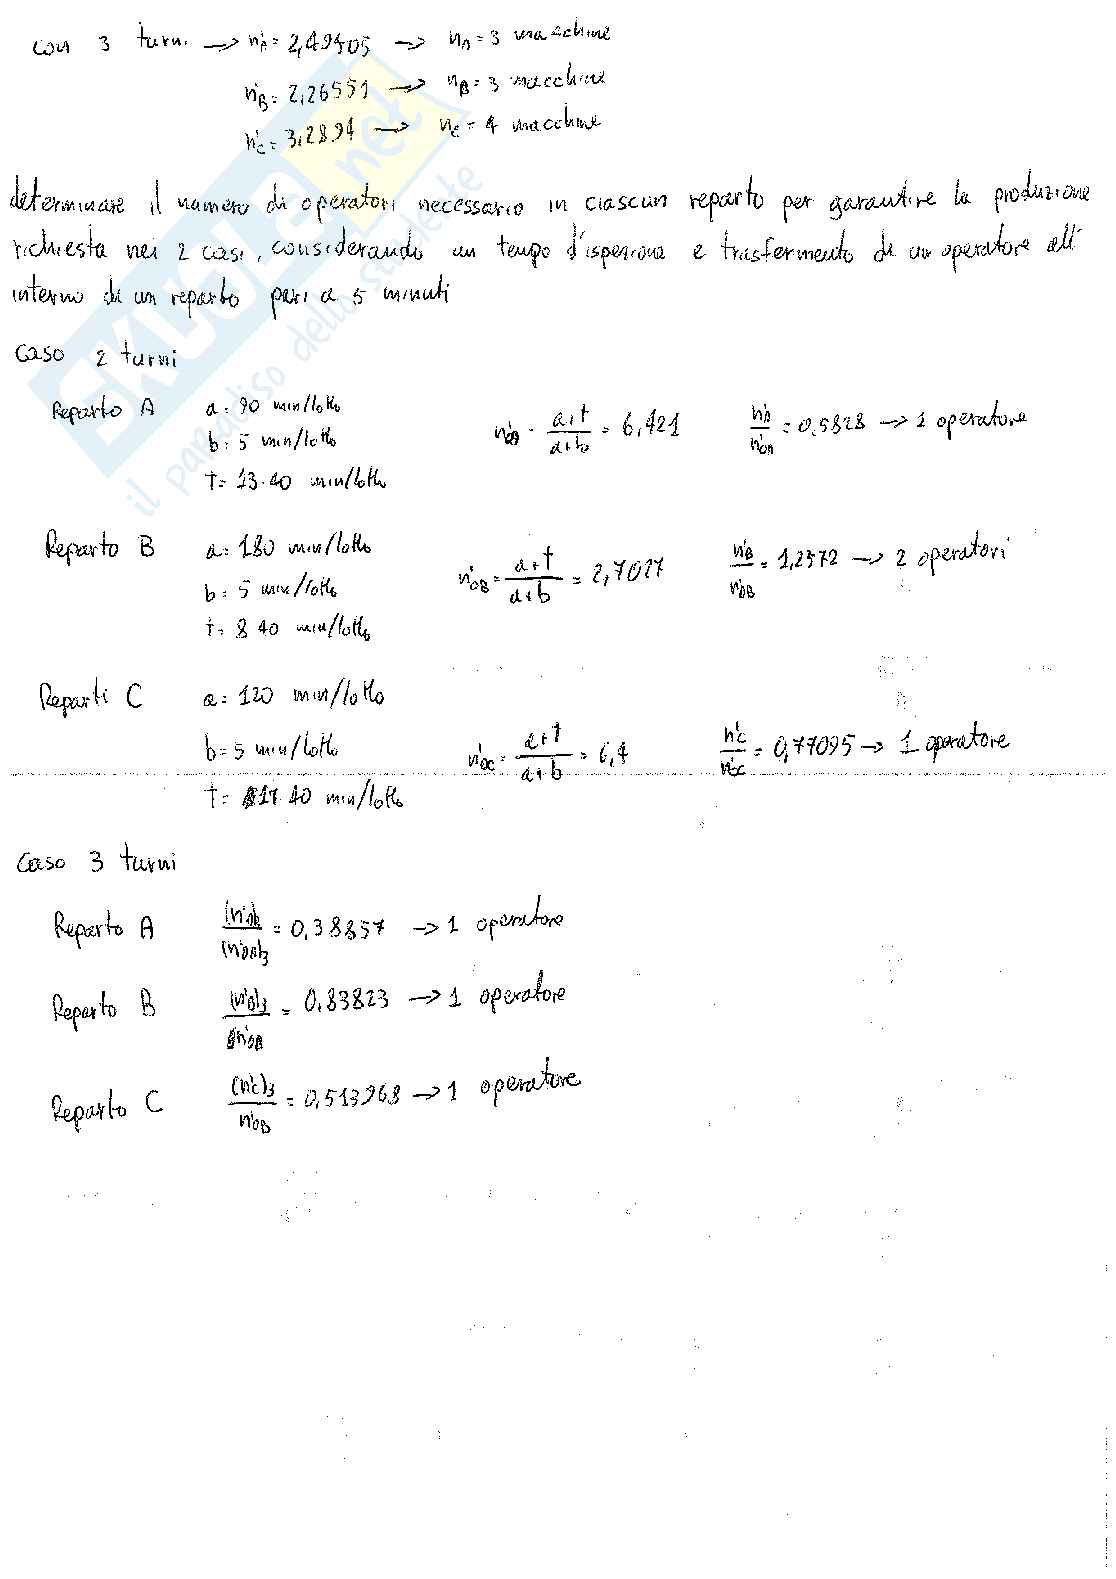 con 3 turni → n'A = 2,49405 → nA = 3 macchine
n'B = 2,26551 → nB = 3 macchine
n'C = 3,2894 → nC = 4 macchine
determinare il numero di operatori necessario in ciascun reparto per garantire la produzione
richiesta nei 2 casi, considerando un tempo d'ispeziona e trasfermento di un operatore all'
interno di un reparto pari a 5 minuti
caso 2 turni
Reparto A a = 90 min/lotto
b = 5 min/lotto
t = 13·40 min/lotto
n'OA = a+t / a+b = 6,421
n'A / n'OA = 0,5828 → 1 operatore
Reparto B a = 180 min/lotto
b = 5 min/lotto
t = 8·40 min/lotto
n'OB = a+t / a+b = 2,7027
n'B / n'OB = 1,2572 → 2 operatori
Reparti C a = 120 min/lotto
b = 5 min/lotto
t = 17·40 min/lotto
n'OC = a+t / a+b = 6,4
n'C / n'OC = 0,77095 → 1 operatore
caso 3 turni
Reparto A = 0,38857 → 1 operatore
Reparto B = 0,83823 → 1 operatore
Reparto C (n'C)3 / n'OB = 0,513968 → 1 operatore
SKUOLA.net
il paradiso dello studente